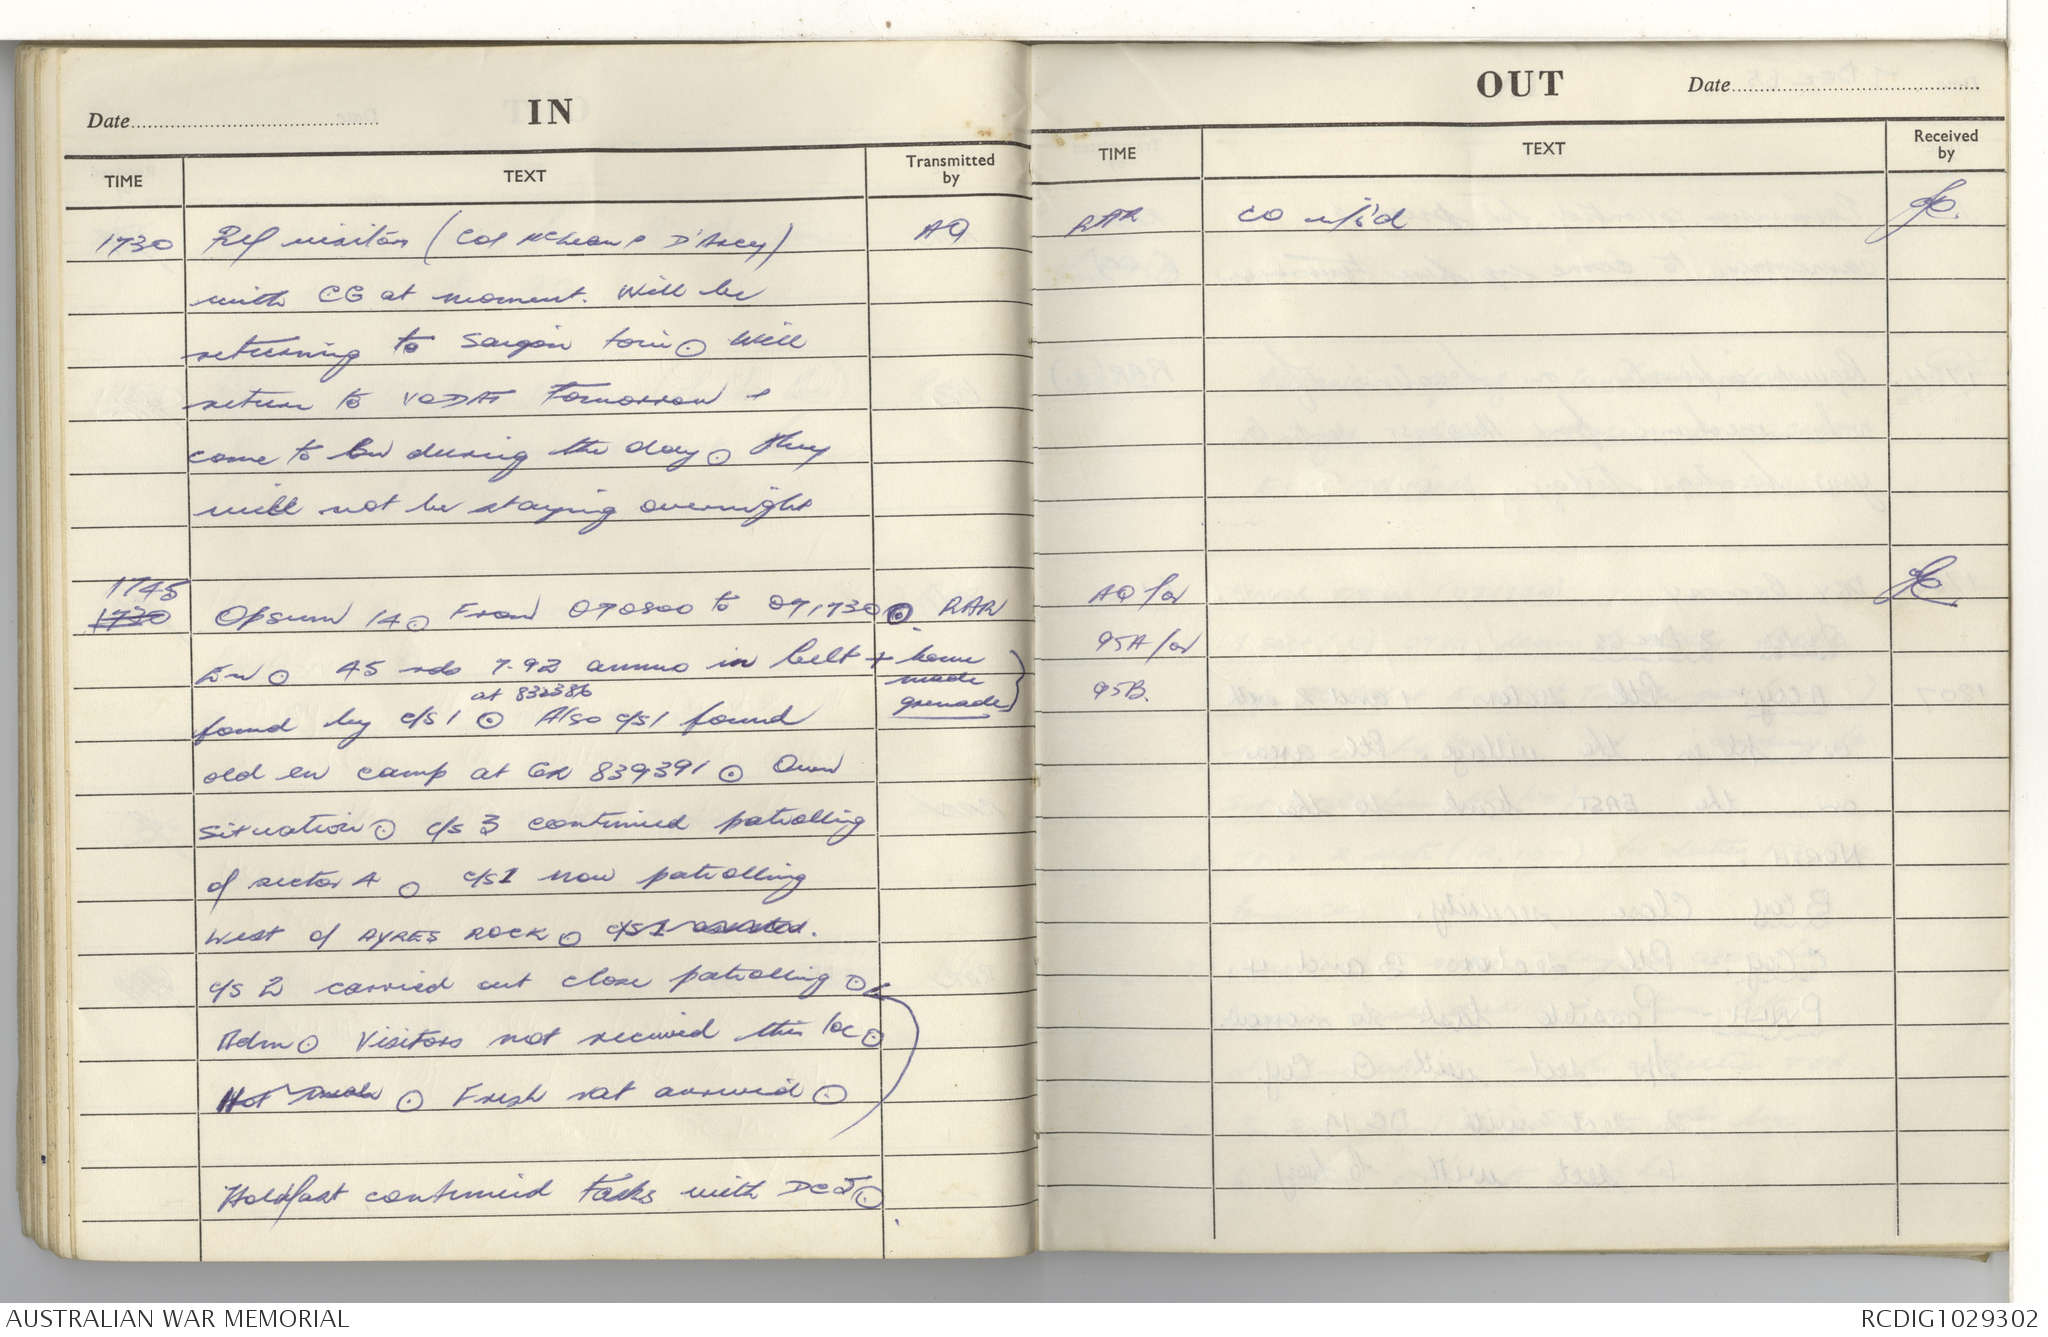 IN
Date
TIME
TEXT
Transmitted by
1730
Ref visitors (Col McLean & D'Arcy)
AQ
with CG at moment. Will be
returning to Saigon toni ⊙ Will
return to VODAF tomorrow &
come to bn during the day ⊙ They
will not be staying overnight
1745
1730
Opsum 14 ⊙ From 070800 to 071730 ⊙
RAR
En ⊙ 45 rds 7.92 ammo in belt + home
made
grenade
at 832386
found by c/s 1 ⊙ Also c/s 1 found
old en camp at GR 839391 ⊙ Own
situation ⊙ c/s 3 continued patrolling
of sector A ⊙ c/s 1 now patrolling
West of AYRES ROCK ⊙ c/s 1
c/s 2 carried out close patrolling ⊙
Adm ⊙ Visitors not received this loc ⊙
Hot meals ⊙ Fresh rat arrived ⊙
Holdfast continued tasks with DC ⊙
OUT
Date
TIME
TEXT
Received by
RAR
CO
AQ/or
95A/or
95B.
AUSTRALIAN WAR MEMORIAL
RCDIG1029302